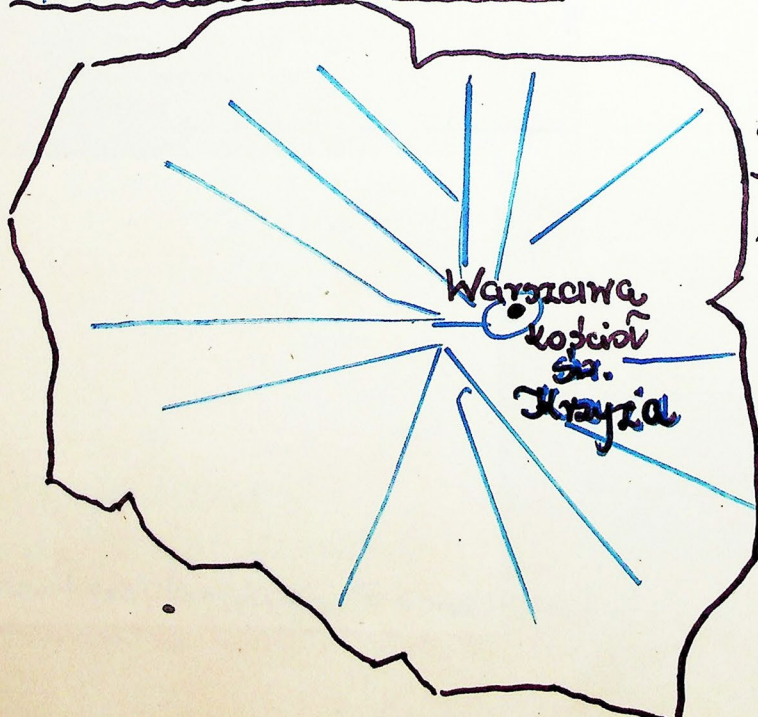 Warszawa
Kościół
św.
Krzyża